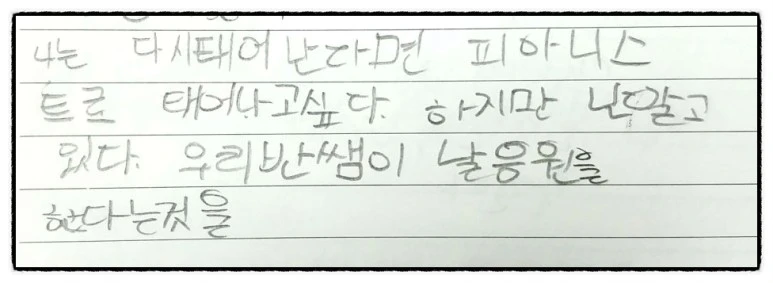 나는 다시태어난다면 피아니스
트로 태어나고싶다. 하지만 난알고
있다. 우리반쌤이 날응원을
한다는것을